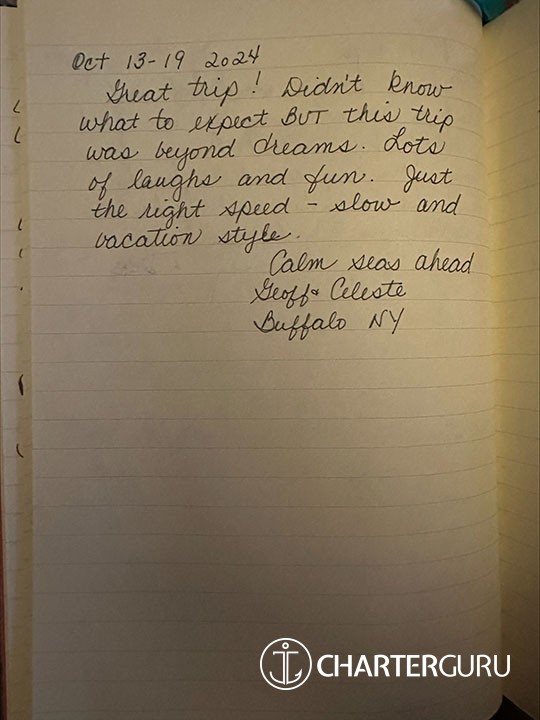 Oct 13-19 2024
Great trip! Didn't know
what to expect BUT this trip
was beyond dreams. Lots
of laughs and fun. Just
the right speed - slow and
vacation style.
Calm seas ahead
Geoff & Celeste
Buffalo NY
CHARTERGURU